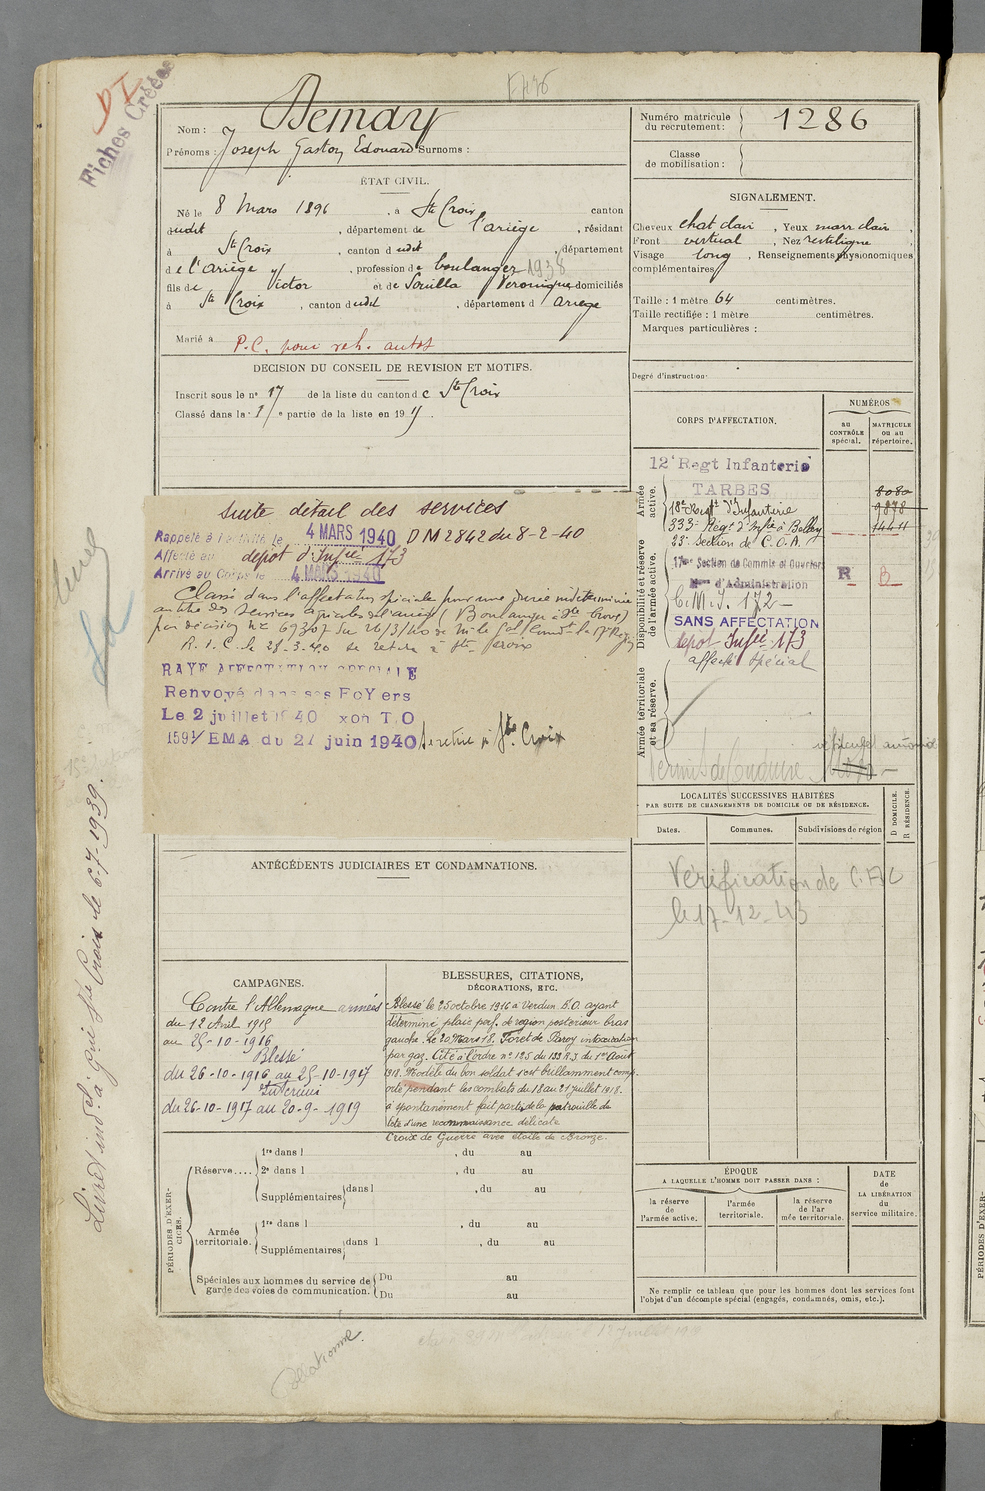 D I
Fiches Créées
Nom : Demay
Prénoms : Joseph Gaston Edouard Surnoms :
Numéro matricule du recrutement : 1286
Classe de mobilisation :
ÉTAT CIVIL.
Né le 8 Mars 1896 , à Ste Croix canton
dudit , département de l'ariège , résidant
à St Croix , canton dudit , département
de l'ariège , profession de boulanger 1938
fils de Victor et de Souilla Véronique domiciliés
à Ste Croix , canton dudit , département d Ariège
Marié à
P.C. pour veh. autos
SIGNALEMENT.
Cheveux chat clair , Yeux marr clair ,
Front vertical , Nez rectiligne ,
Visage long , Renseignements physionomiques
complémentaires
Taille : 1 mètre 64 centimètres.
Taille rectifiée : 1 mètre centimètres.
Marques particulières :
Degré d'instruction :
DECISION DU CONSEIL DE REVISION ET MOTIFS.
Inscrit sous le n° 17 de la liste du canton de Ste Croix
Classé dans la 1re partie de la liste en 19 15.
CORPS D'AFFECTATION.
NUMÉROS
au CONTRÔLE spécial.
MATRICULE ou au répertoire.
Armée active.
12e Regt Infanterie
TARBES
8080
18e Regt d'Infanterie 9878
333e Régt d'Infie à Belley 14411
23e Section de C.O.A.
Disponibilité et réserve de l'armée active.
17me Section de Commis et Ouvriers
Mres d'Administration
R B
C.M.I. 172
SANS AFFECTATION
dépot Infie 173
affecté spécial
Armée territoriale et sa réserve.
Permis de Conduire
suite détail des services
Rappelé à l'activité le 4 MARS 1940 DM 2842 du 8-2-40
Affecté au dépot d'Infie 173
Arrivé au Corps le 4 MARS 1940
Classé dans l'affectation spéciale pour une durée indéterminée
au titre des services agricoles de l'ariège (Boulanger à Ste Croix)
par décision n° 69307 du 26/3/40 de Mr le Gal Commt la 17e Rég
R.I.C. le 28-3-40 se retire à Ste Croix
RAYE AFFECTATION SPECIALE
Renvoyé dans ses FoYers
Le 2 juillet 1940 xon T.O
1591/EMA du 27 juin 1940 se retire à Ste Croix
LOCALITÉS SUCCESSIVES HABITÉES
PAR SUITE DE CHANGEMENTS DE DOMICILE OU DE RÉSIDENCE.
Dates.
Communes.
Subdivisions de région
D DOMICILE.
R RÉSIDENCE.
Vérification de C.A.C
le 17-12-43
ANTÉCÉDENTS JUDICIAIRES ET CONDAMNATIONS.
CAMPAGNES.
Contre l'Allemagne armées
du 12 Avril 1915
au 25-10-1916
Blessé
du 26-10-1916 au 25-10-1917
Intérieur
du 26-10-1917 au 20-9-1919
BLESSURES, CITATIONS,
DÉCORATIONS, ETC.
Blessé le 25 octobre 1916 à Verdun E.O. ayant
déterminé plaie perf. de région postérieur bras
gauche. Le 20 Mars 18, Foret de Paroy intoxication
par gaz. Cité à l'ordre n° 125 du 133 R.I du 1er Aout
1918. Modèle du bon soldat s'est brillamment comp-
orté pendant les combats du 18 au 21 juillet 1918.
à spontanément fait partie de la patrouille de
tête d'une reconnaissance délicate
Croix de Guerre avec étoile de Bronze.
PÉRIODES D'EXERCICES.
Réserve....
1re dans l , du au
2e dans l , du au
Supplémentaires dans l , du au
Armée territoriale.
1re dans l , du au
Supplémentaires dans l , du au
Spéciales aux hommes du service de garde des voies de communication.
Du au
Du au
ÉPOQUE
A LAQUELLE L'HOMME DOIT PASSER DANS :
la réserve de l'armée active.
l'armée territoriale.
la réserve de l'armée territoriale.
DATE de LA LIBÉRATION du service militaire.
Ne remplir ce tableau que pour les hommes dont les services font
l'objet d'un décompte spécial (engagés, condamnés, omis, etc.).